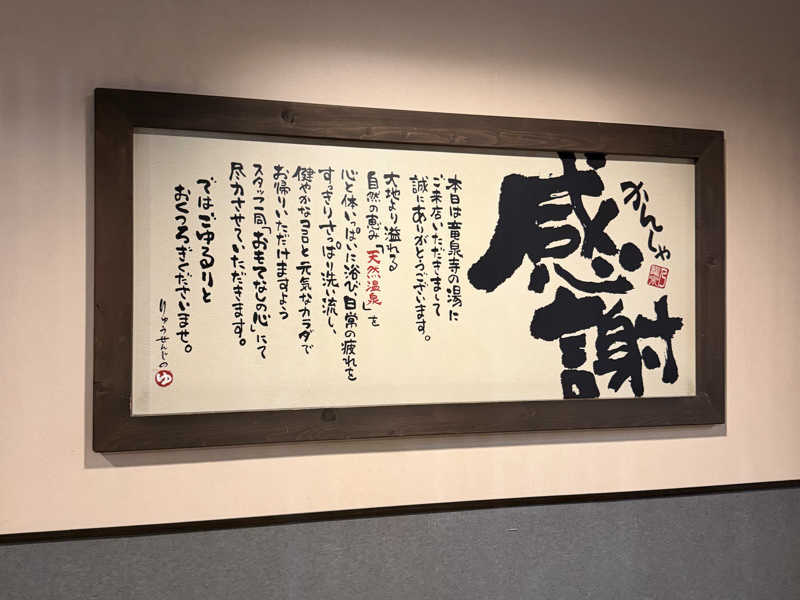 かんしゃ
感謝
本日は竜泉寺の湯に
ご来店いただきまして
誠にありがとうございます。
大地より溢れる
自然の恵み「天然温泉」を
心と体いっぱいに浴び、日常の疲れを
すっきりさっぱり洗い流し、
健やかなココロと元気なカラダで
お帰りいただけますよう
スタッフ一同「おもてなしの心」にて
尽力させていただきます。
ではごゆるりと
おくつろぎくださいませ。
りゅうせんじの
ゆ